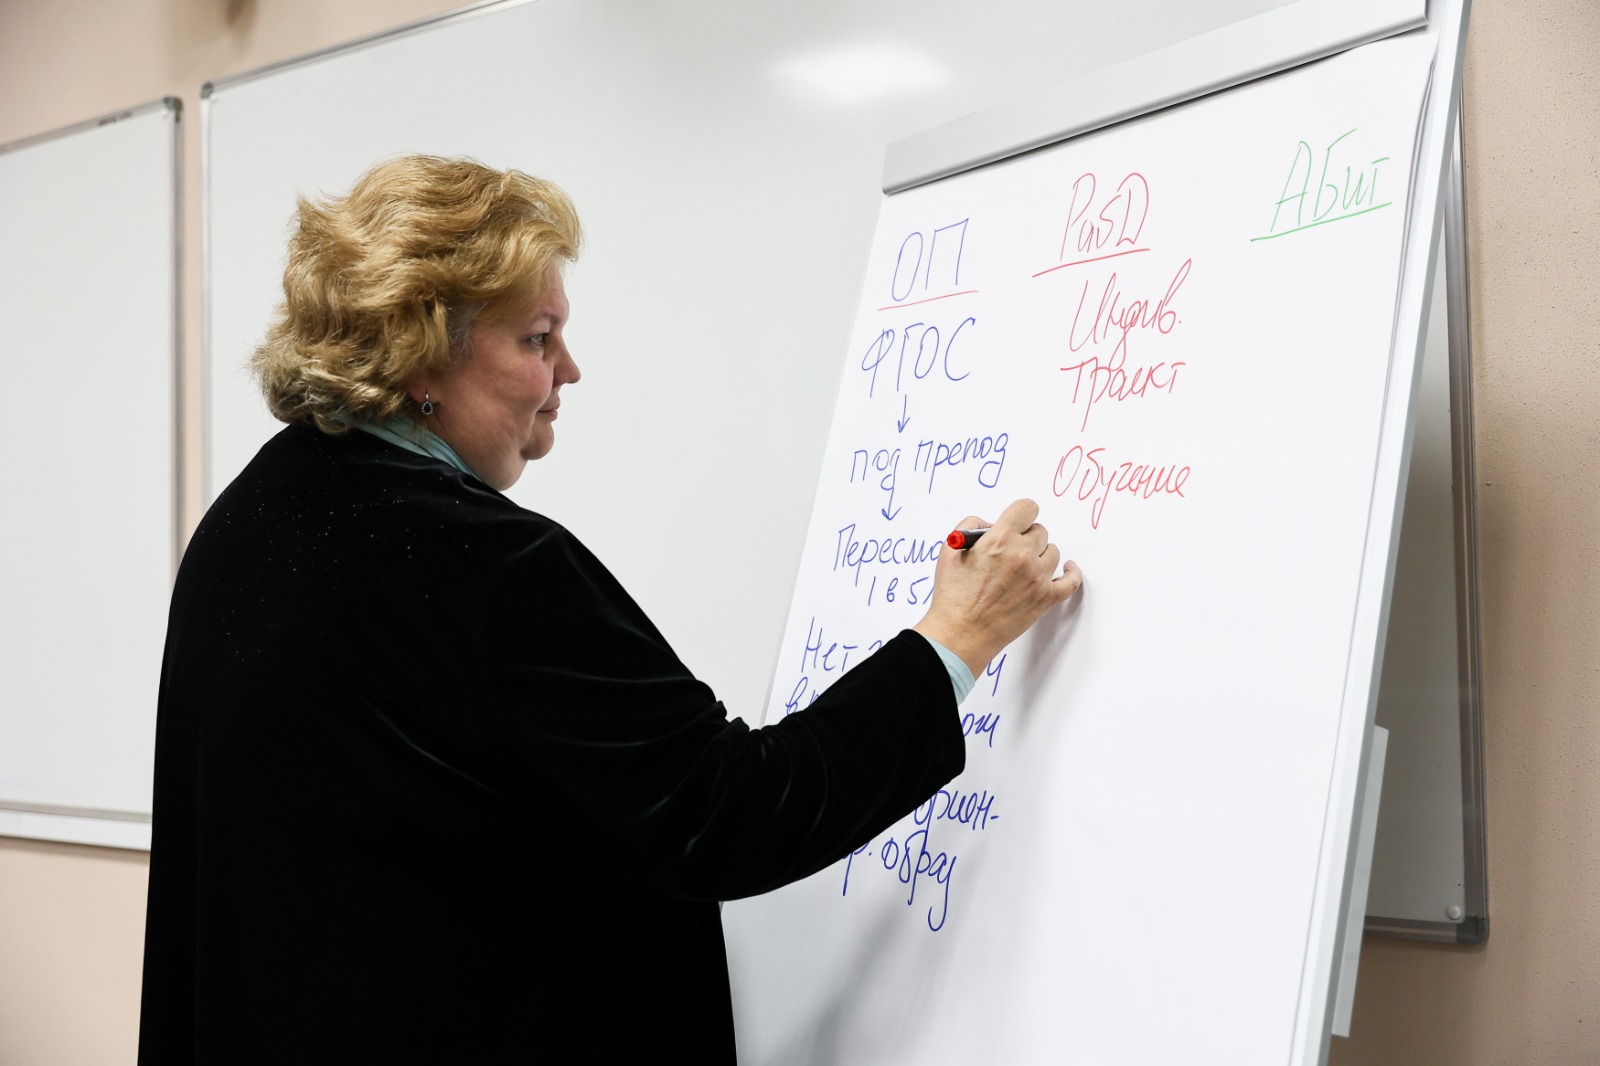 ОП
ФГОС
под препод
Пересмо
1 в 5
Нет
ориен-
образ
РабД
Индив.
траект
Обучение
АБит